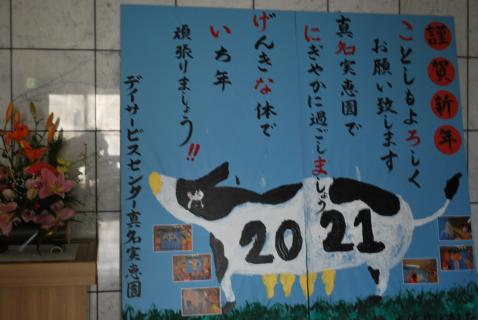 謹賀新年
ことしもよろしく
お願い致します
真名実恵園で
にぎやかに過ごしましょう
げんきな体で
いち年
頑張りましょう!!
デイサービスセンター真名実恵園
2021